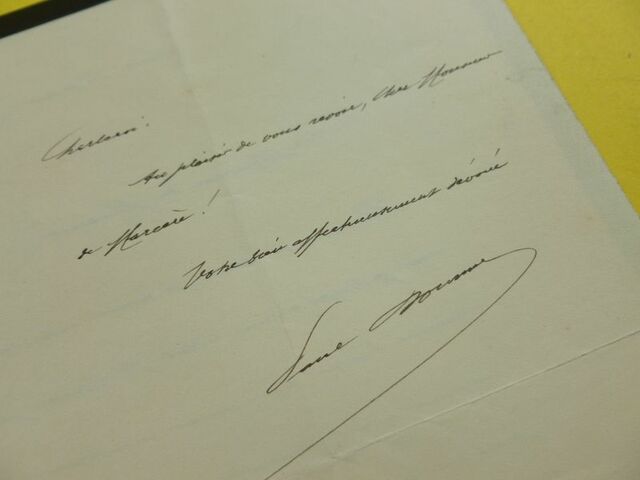 Au plaisir de vous revoir, Cher Monsieur
de Marcère !
Votre bien affectueusement dévoué
Paul